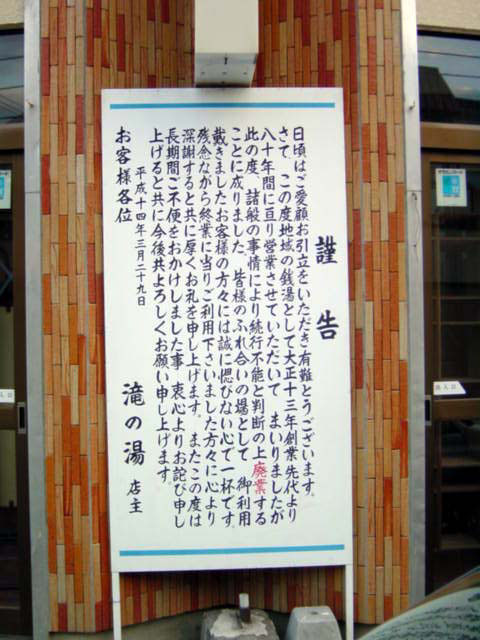 謹告
日頃はご愛顧お引立をいただき有難とうございます。
さて、この度地域の銭湯として大正十三年創業先代より
八十年間に亘り営業させていただいて まいりましたが
此の度、諸般の事情により続行不能と判断の上廃業する
ことに成りました。皆様のふれ合いの場として 御利用
戴きましたお客様の方々には誠に偲びない心で一杯です。
残念ながら終業に当りご利用下さいました方々に心より
深謝すると共に厚くお礼を申し上げます。またこの度は
長期間ご不便をおかけしました事 衷心よりお詫び申し
上げると共に今後共よろしくお願い申し上げます。
平成十四年三月二十九日
お客様各位
滝の湯 店主